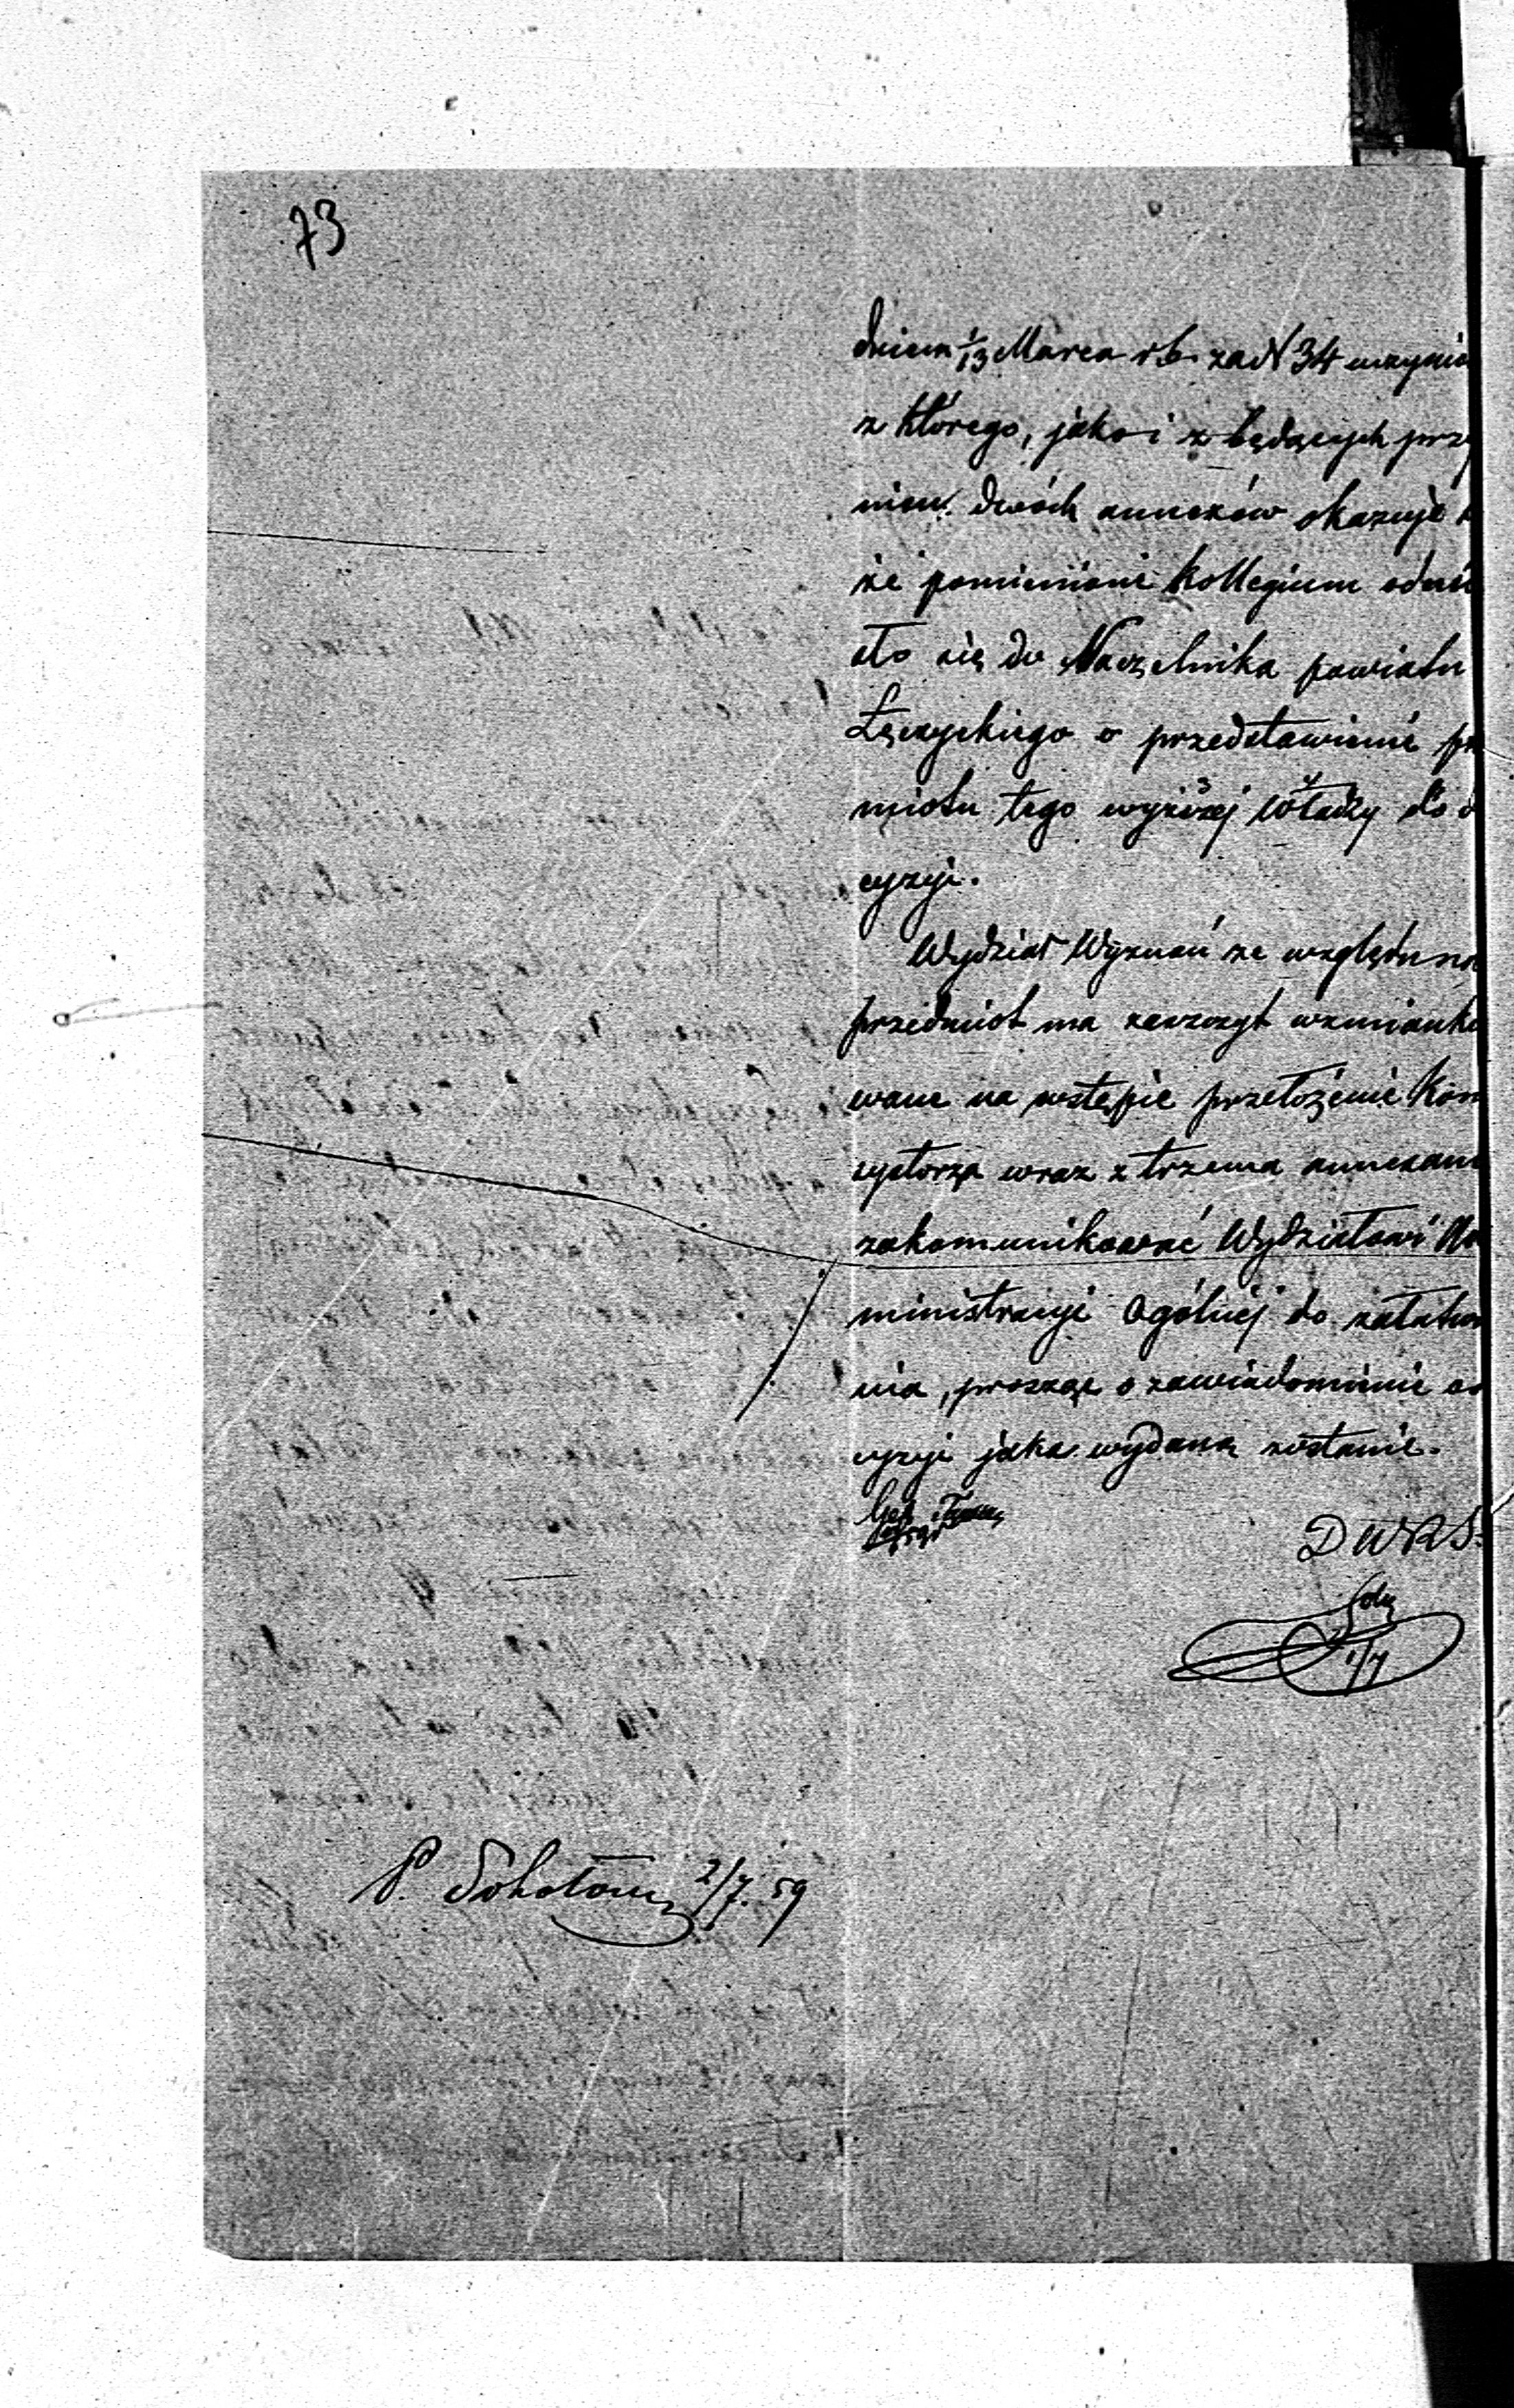 73
dniem 1/13 Marca r.b. za N 34 uczynio
z którego, jako i z będących przy
niem dwóch annexów okazuje s
że pomienione Kollegium odnio
sło się do Naczelnika powiatu
Łęczyckiego o przedstawienie prz
miotu tego wyższej Władzy do d
cyzyi.
Wydział Wyznań ze względu na
przedmiot ma zaszczyt wzmianko
wane na wstępie przełożenie Kon
systorza wraz z trzema annexami
zakomunikować Wydziałowi Ad
ministracyi Ogólnej do załatwi
nia, prosząc o zawiadomienie o
cyzyi jaka wydaną zostanie.
DWRS.
1/7
P. 2/7. 59